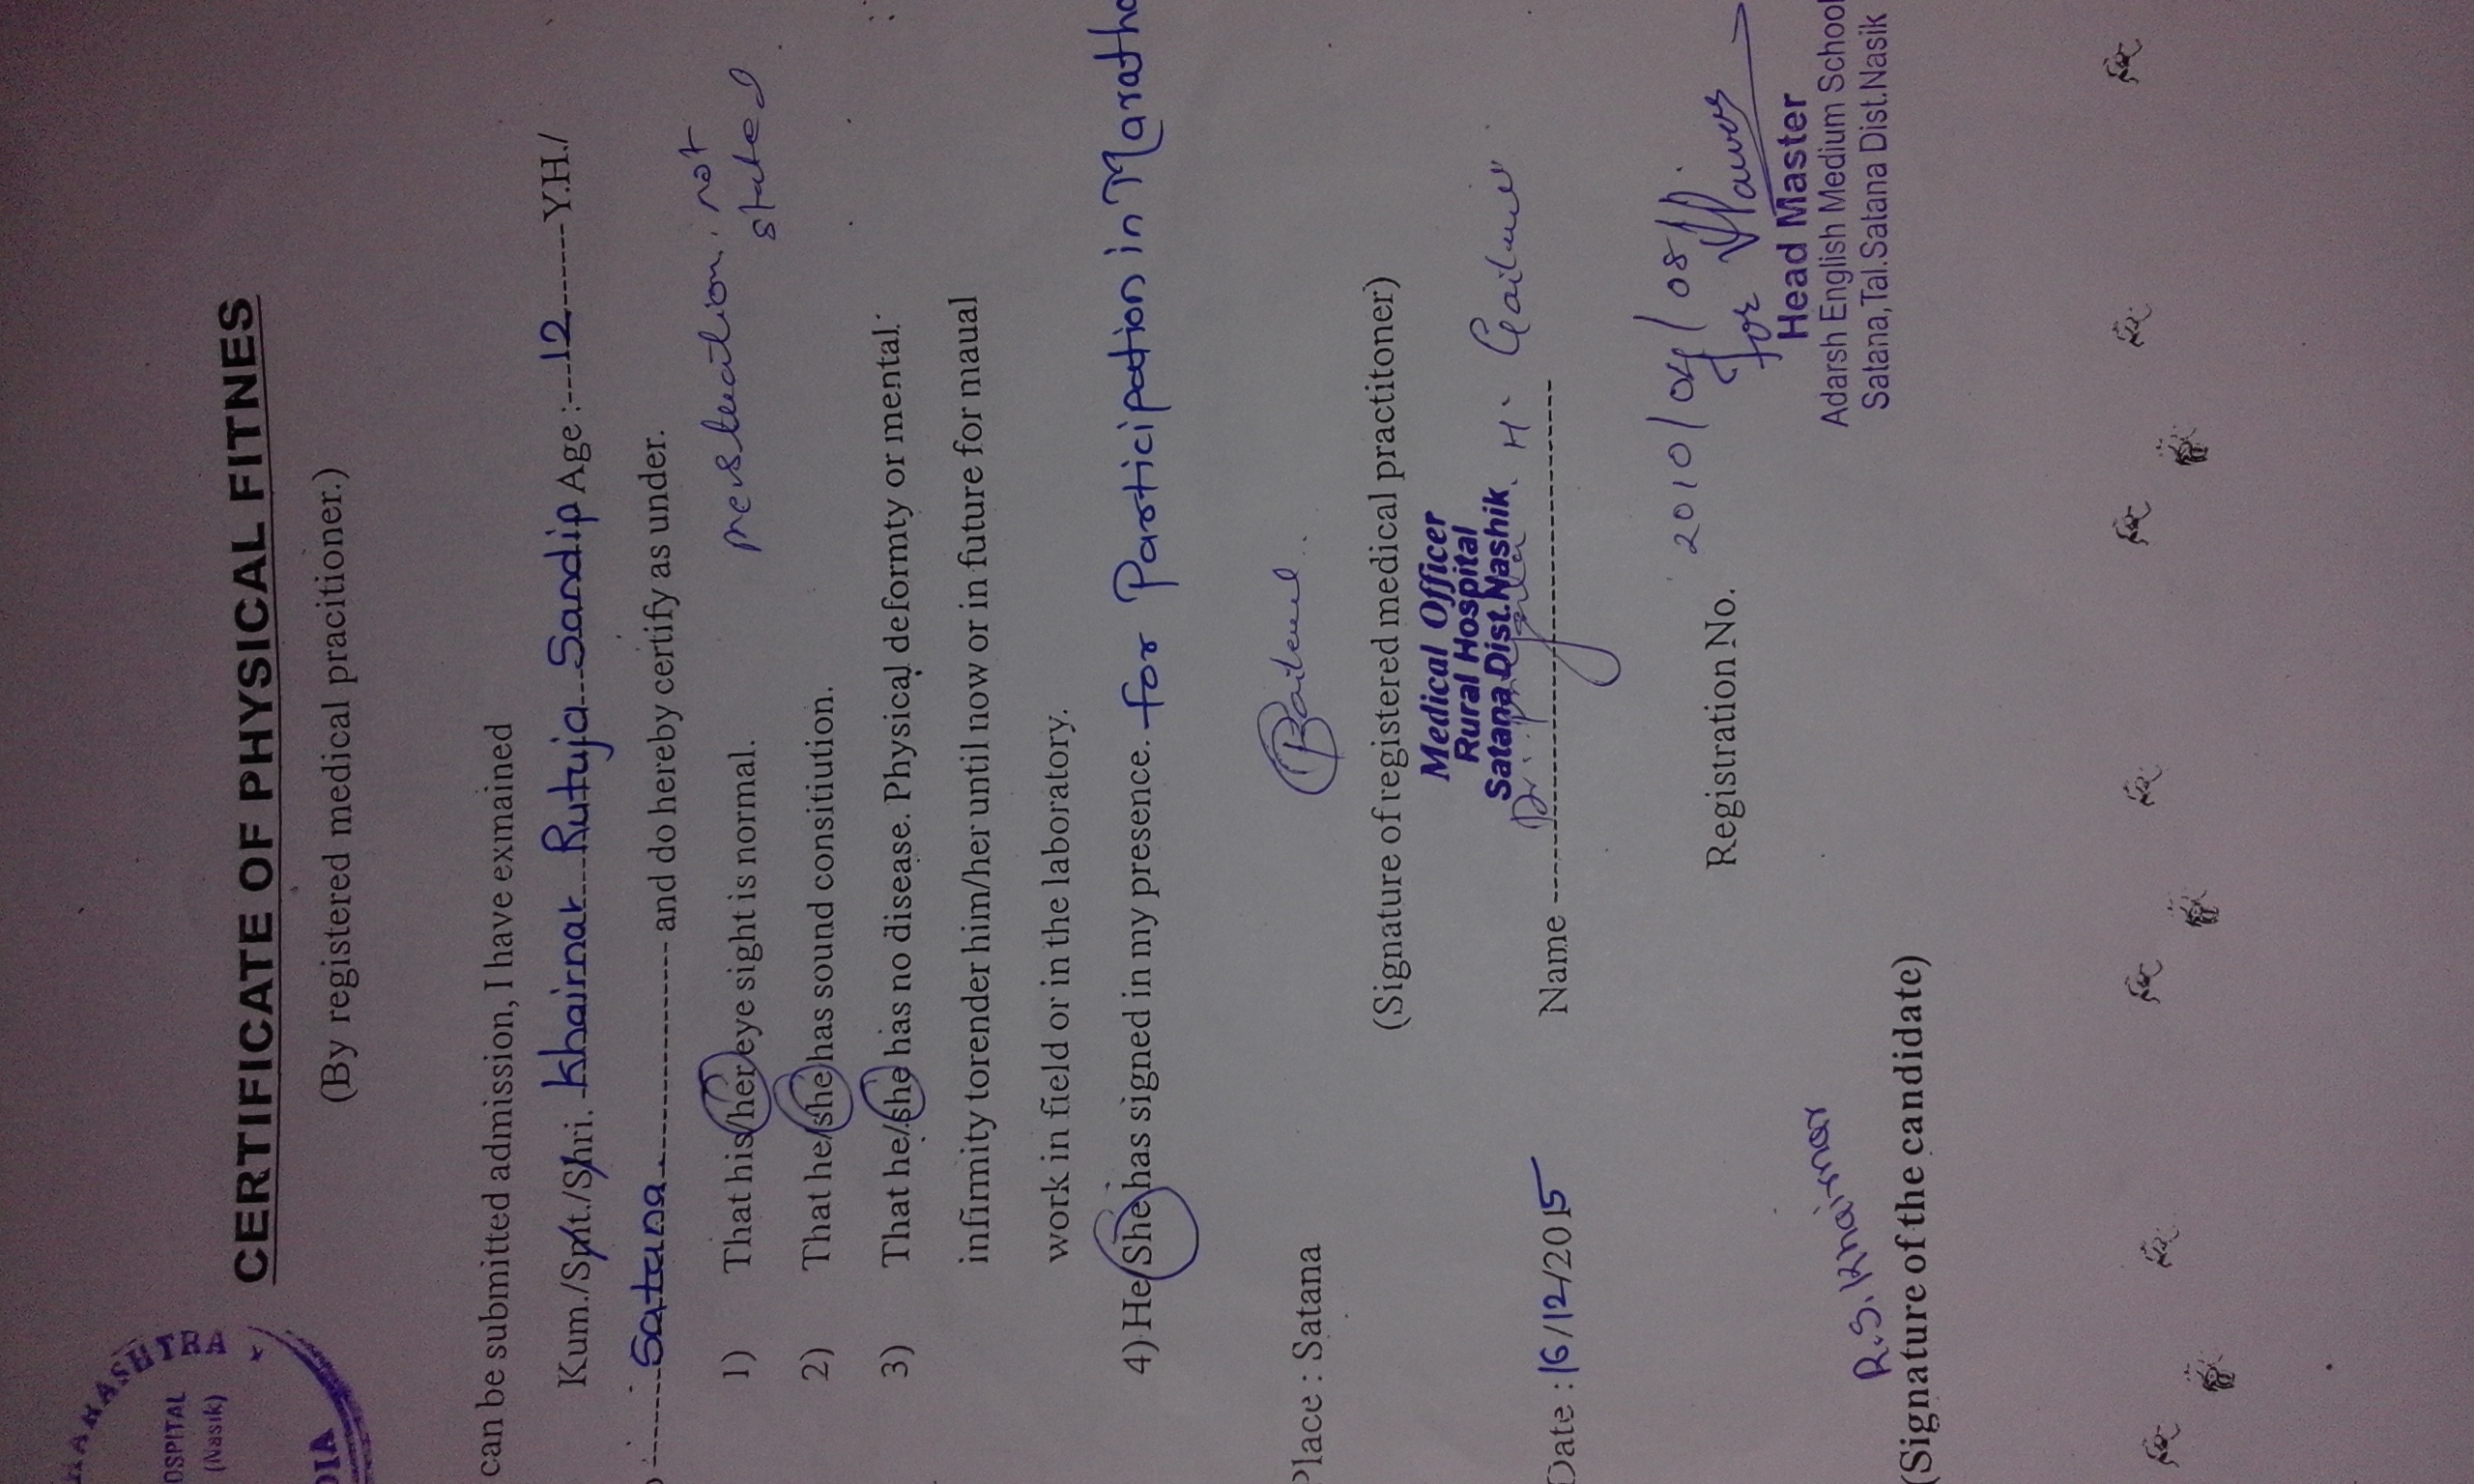 MAHARASHTRA
OSPITAL
(Nasik)
DIA
CERTIFICATE OF PHYSICAL FITNES
(By registered medical pracitioner.)
can be submitted admission, I have exmained
Kum./Smt./Shri. Khairnar Rutuja Sandip Age :---12------- Y.H./
Satana ------------ and do hereby certify as under.
1) That his/her eye sight is normal.
not
stated
2) That he/she has sound consitiution.
3) That he/she has no disease. Physical deformty or mental.
infirmity torender him/her until now or in future for maual
work in field or in the laboratory.
4) He/She has signed in my presence. for Participation in Maratho
Place : Satana
(Signature of registered medical practitoner)
Medical Officer
Rural Hospital
Satana Dist.Nashik
Dr. H.
Date : 16/12/2015
Name ------------
Registration No. 2010/04/08
for
Head Master
Adarsh English Medium School
Satana,Tal.Satana Dist.Nasik
R.S. Khairnar
(Signature of the candidate)